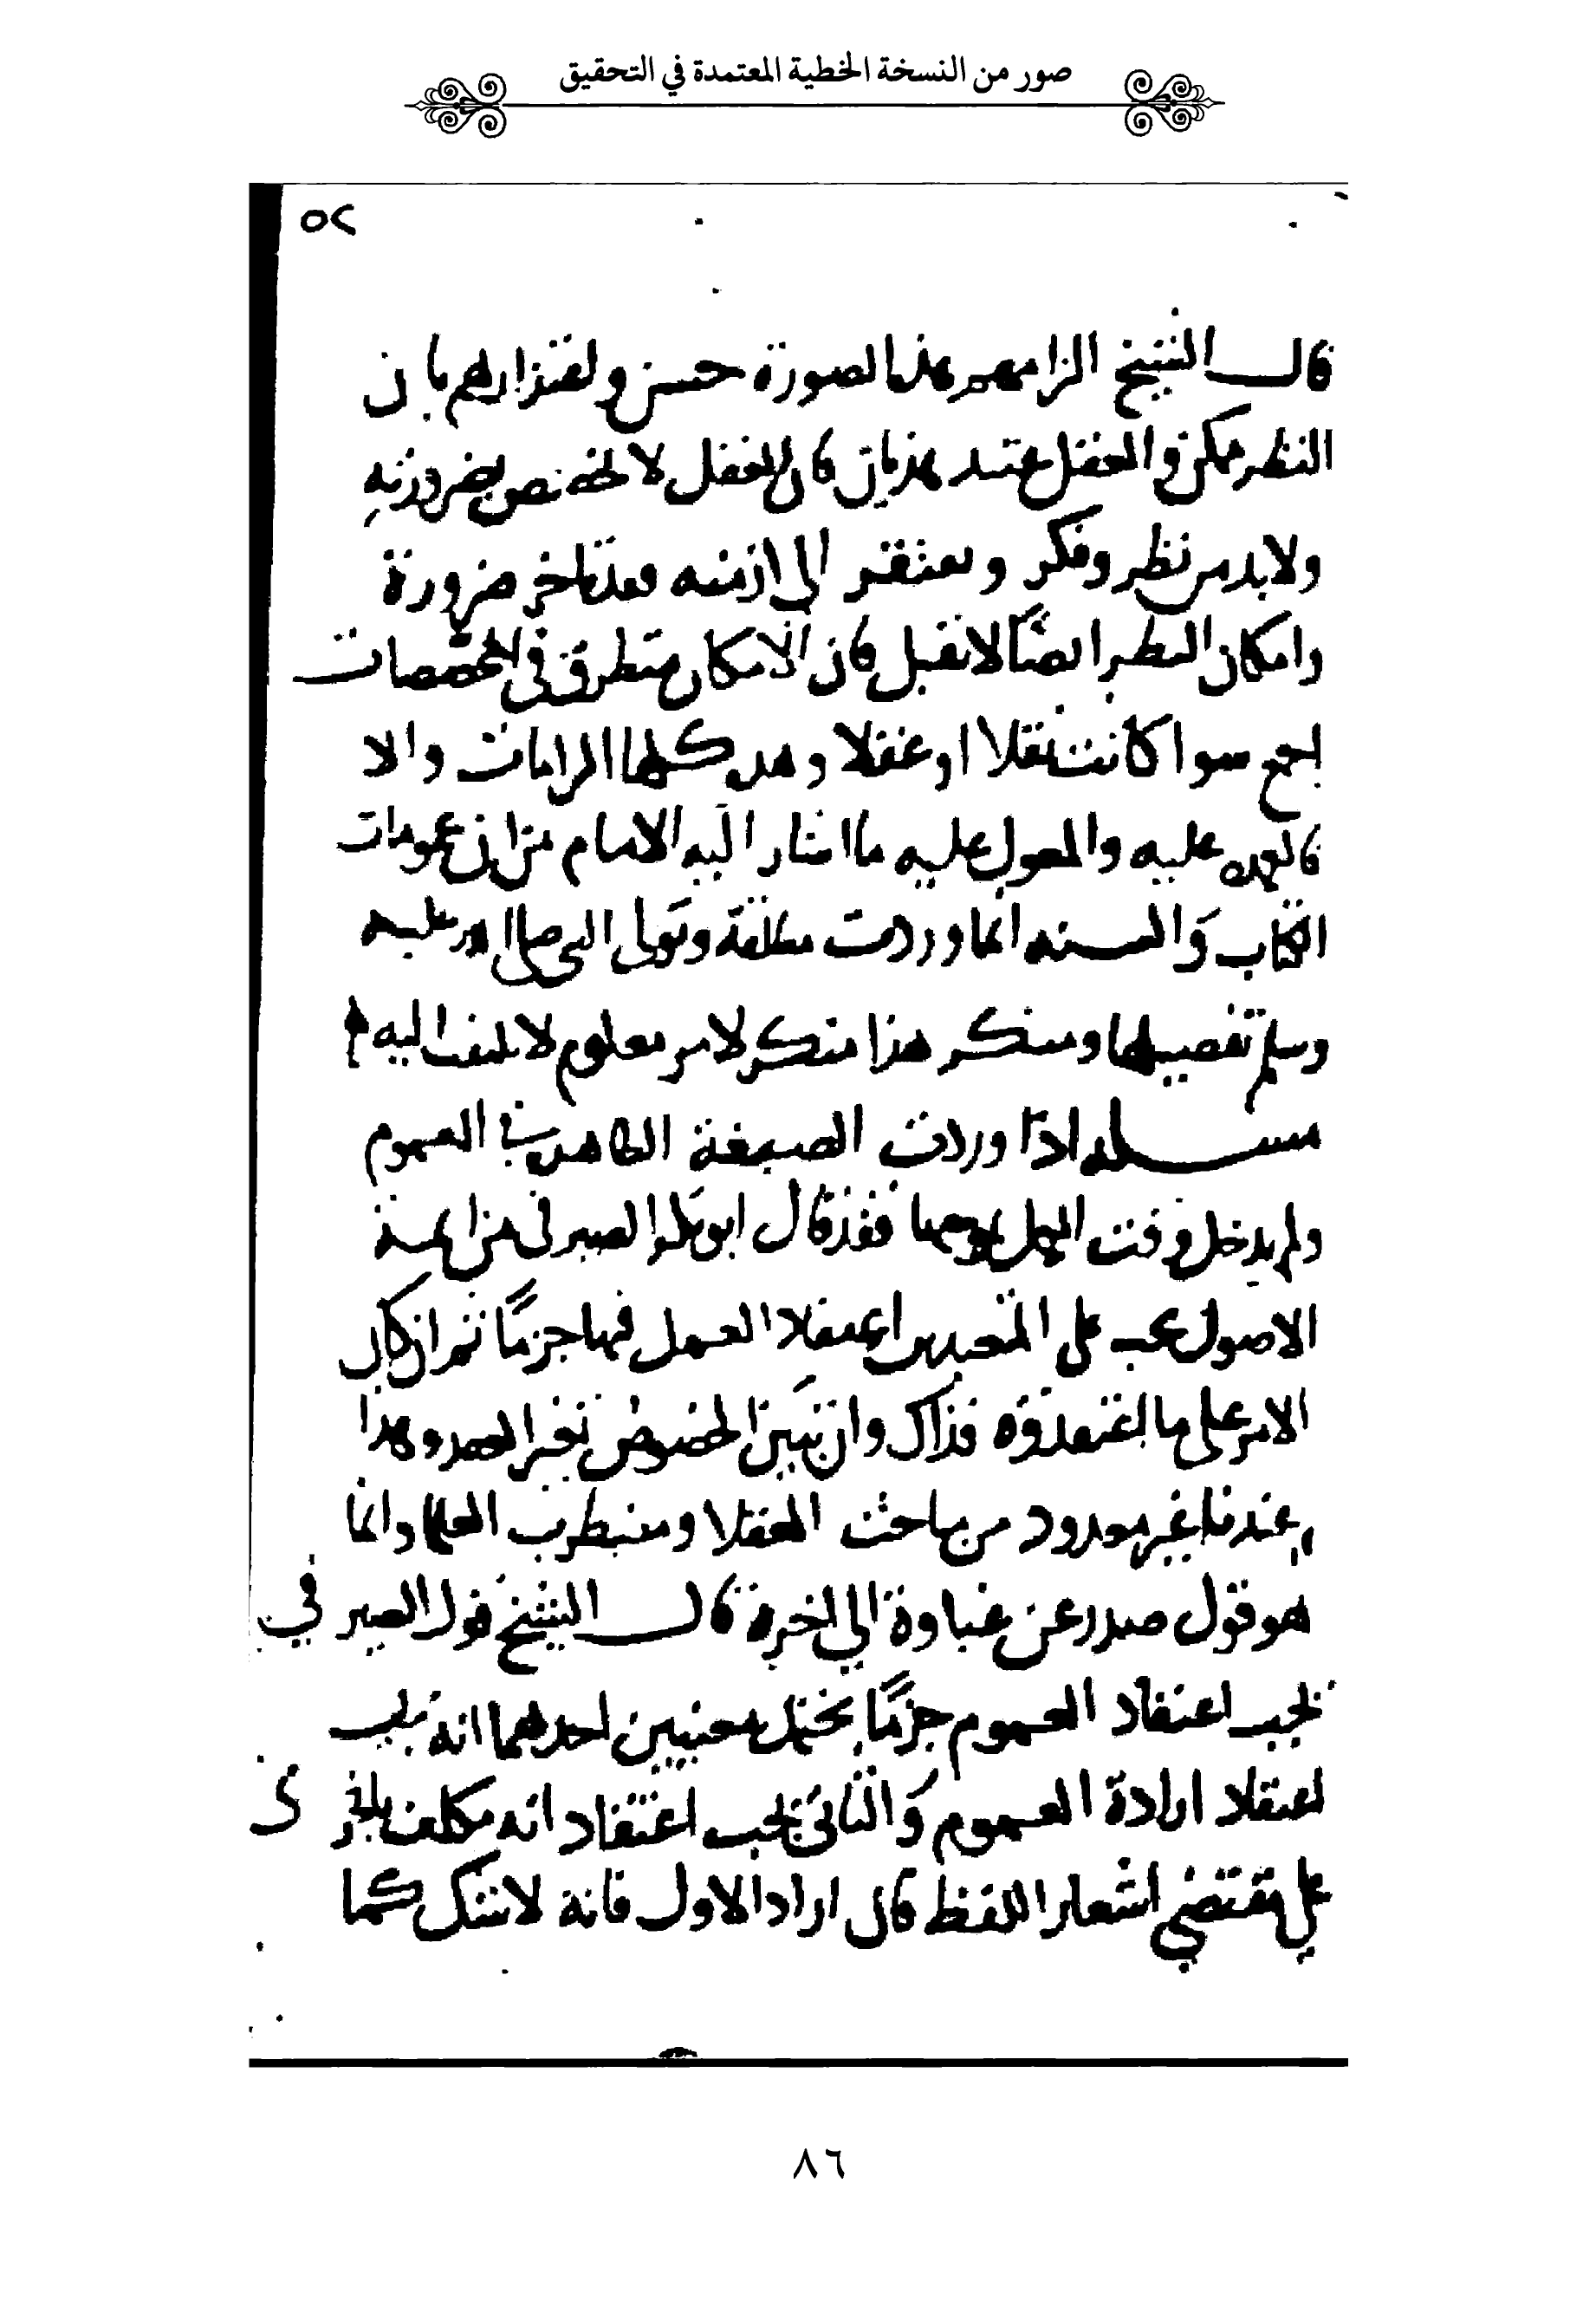 صور من النسخة الخطية المعتمدة في التحقيق
٥٢
قال الشيخ الزامهم بهذا الصورة حسن ولعتذارهم بان
النظر ممكن والعقل عتيد هذيان فان العقل لا يخصص بضرورته
ولابد من نظر وفكر ويفتقر الى ازمنه فقد تاخر ضرورة
وامكان النظر ايضًا لا يقبل فان الامكان متطرق في المخصصات
اجمع سوا كانت نقلا او عقلا وهذه كلها الزامات والا
فالعهده عليه والمعول عليه ما اشار اليه الامام من ان عمومات
الكتاب والسنه انما وردت مطلقة وتولى النبي صلى الله عليه
وسلم تفصيلها ومنكر هذا منكر لامر معلوم لا يلتفت اليه
مسله اذا وردت الصيغة الظاهره في العموم
ولم يدخل وقت العمل بموجبها فقد قال ابو بكر الصيرفي من ايمة
الاصول يجب على المتعبدين اعتقاد العمل فيها جزمًا ثم ان كان
الامر على ما اعتقدوه فذاك وان تبين الخصوص تغير العقد وهذا
عندنا غير معدود من مباحث العقلا ومضطرب العلما وانما
هو قول صدر عن غباوة الى اخره قال الشيخ قول الصيرفي
يجب اعتقاد العموم جزمًا يحتمل معنيين احدهما انه يجب
اعتقاد ارادة العموم والثاني يجب اعتقاد انه مكلف بالجري
على مقتضى اشعار اللفظ فان اراد الاول فانه لا شك كما
٨٦